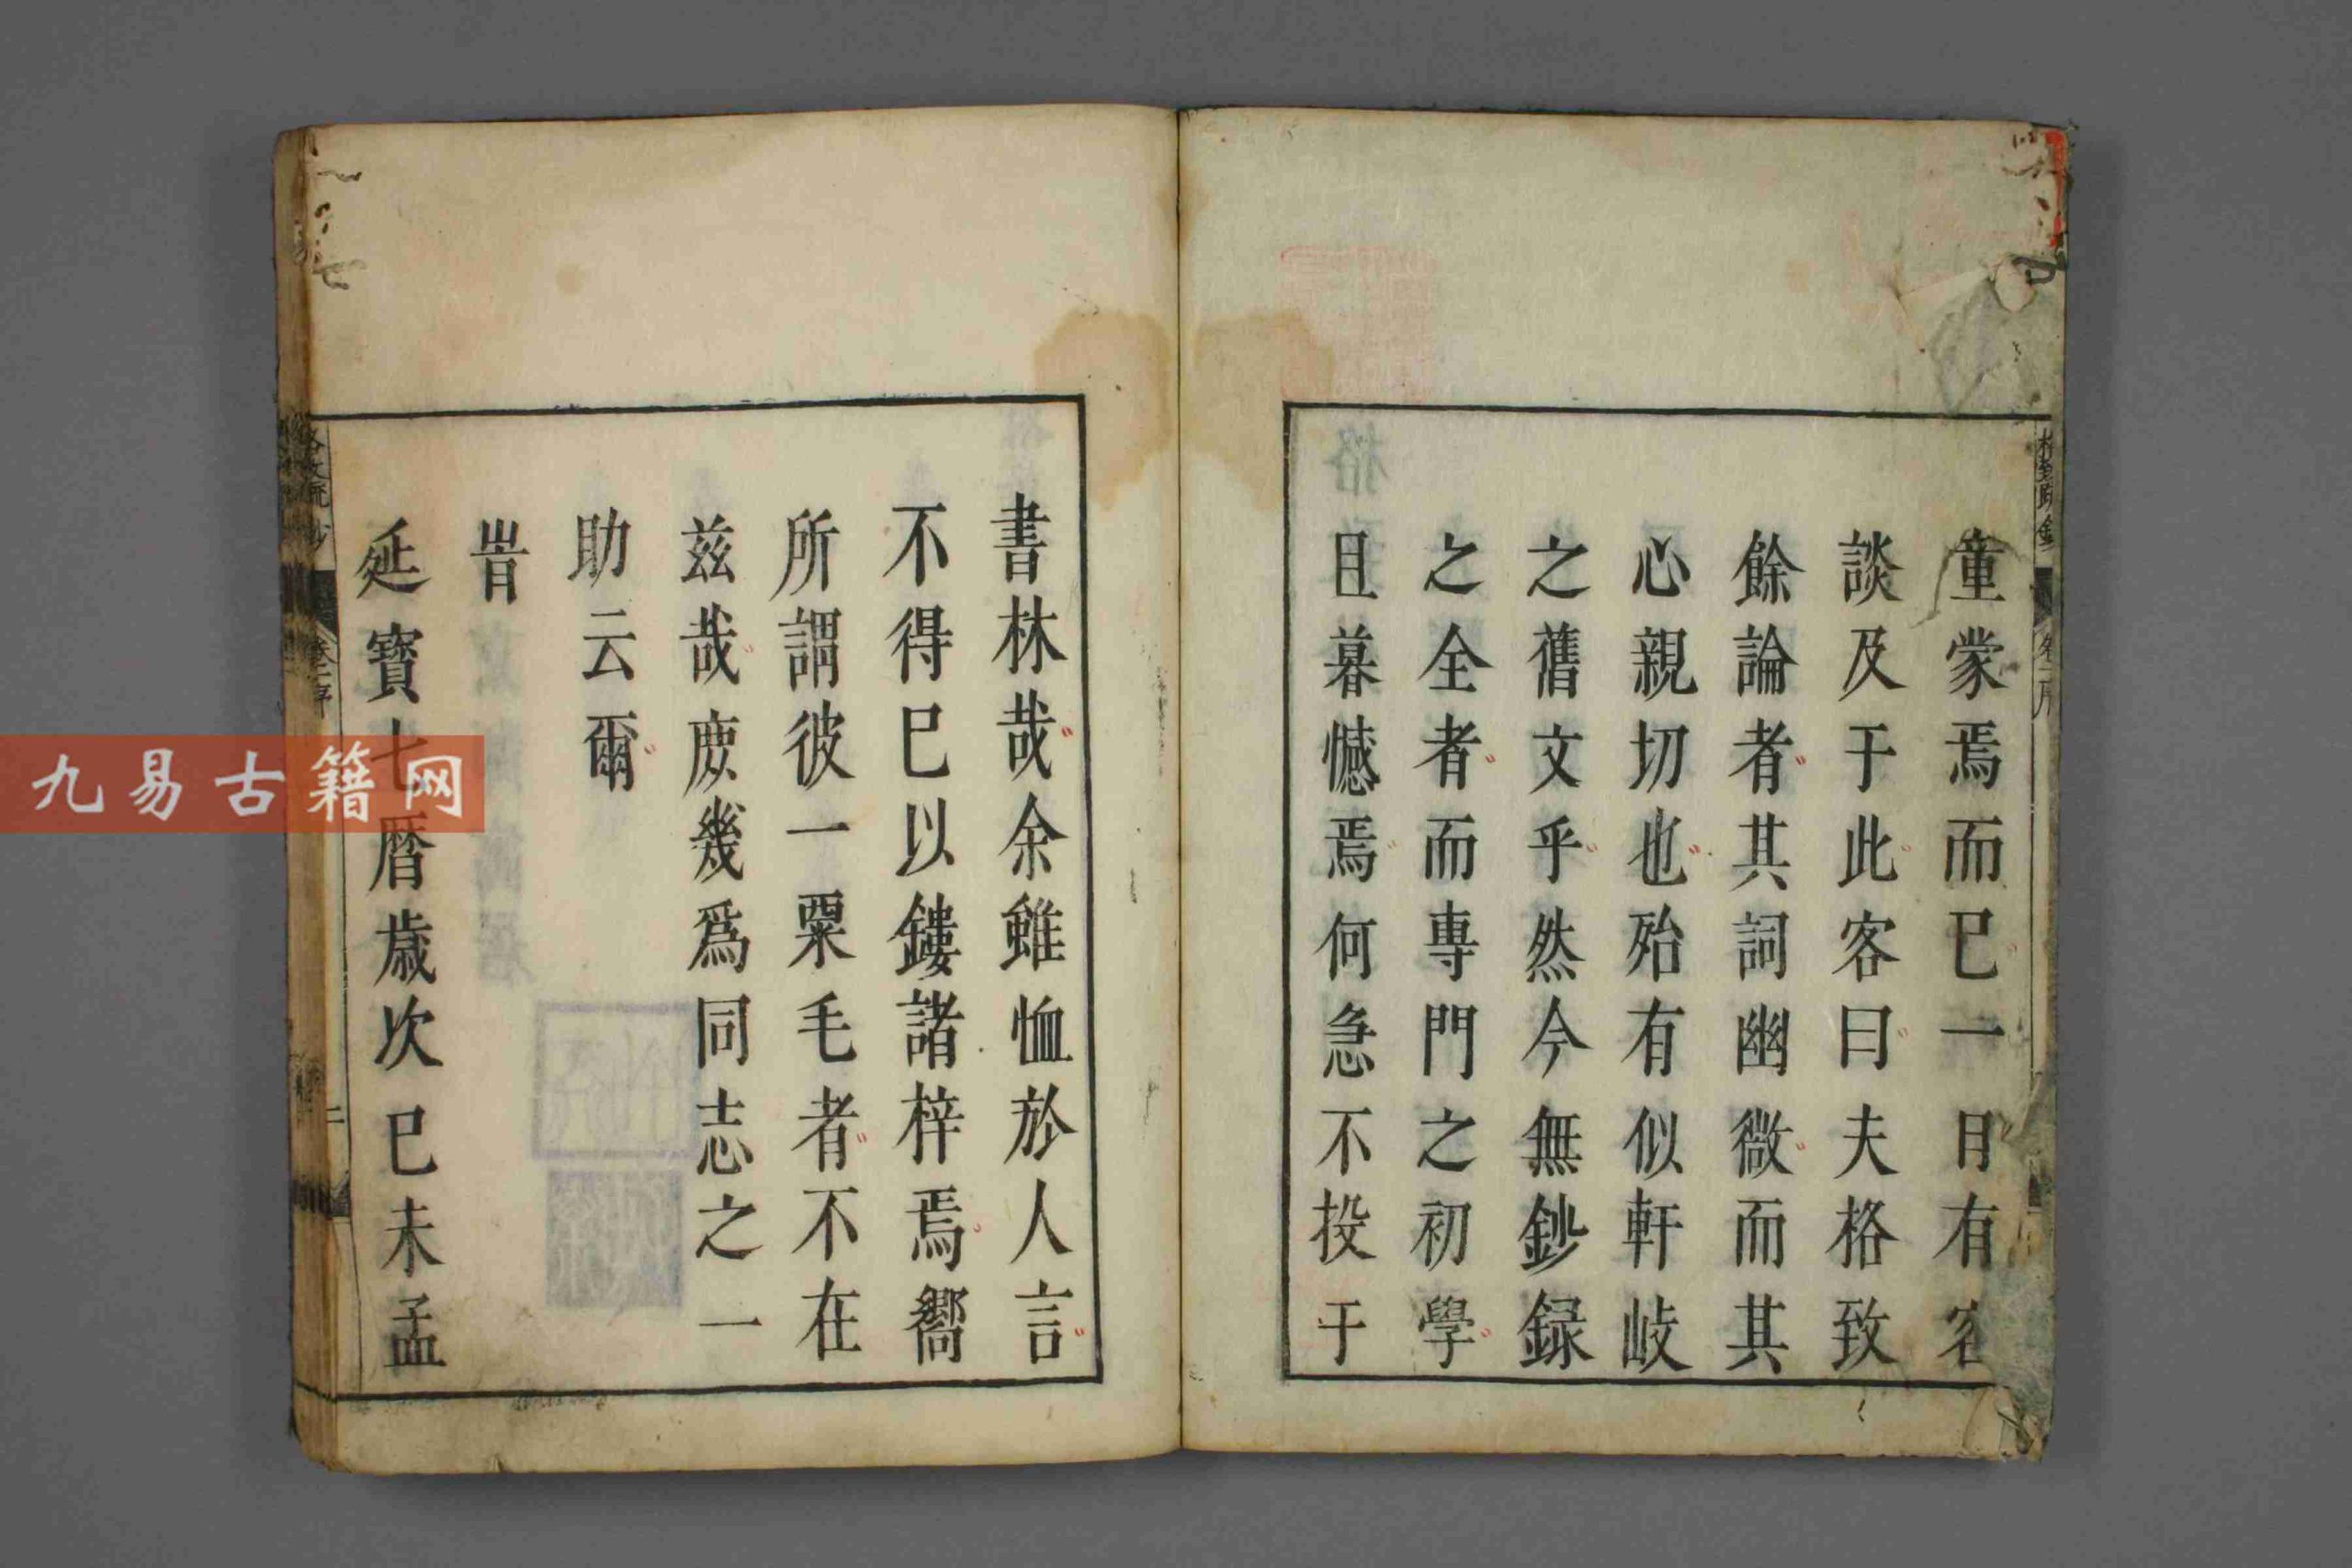 童蒙焉而已一日有客
談及于此客曰夫格致
餘論者其詞幽微而其
心親切也殆有似軒岐
之舊文乎然今無鈔録
之全者而專門之初學
且暮憾焉何急不投于
書林哉余雖恤於人言
不得已以鏤諸梓焉嚮
所謂彼一粟毛者不在
兹哉庻幾爲同志之一
助云爾
旹
延寳七曆歳次巳未孟
九易古籍网